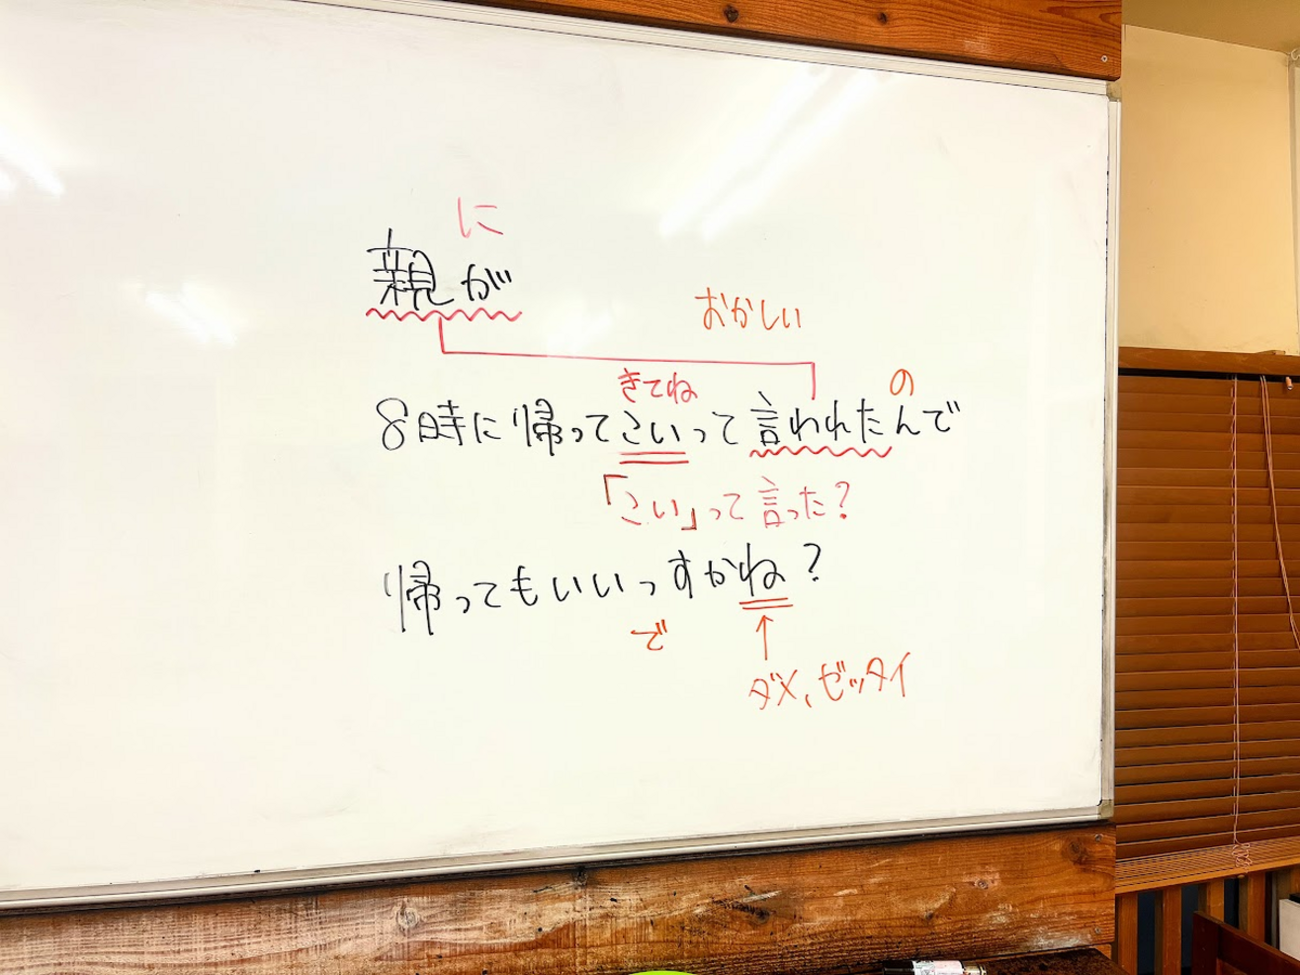 に
親が
おかしい
きてね
の
8時に帰ってこいって言われたんで
「こい」って言った?
帰ってもいいっすかね?
で
↑
ダメ、ゼッタイ